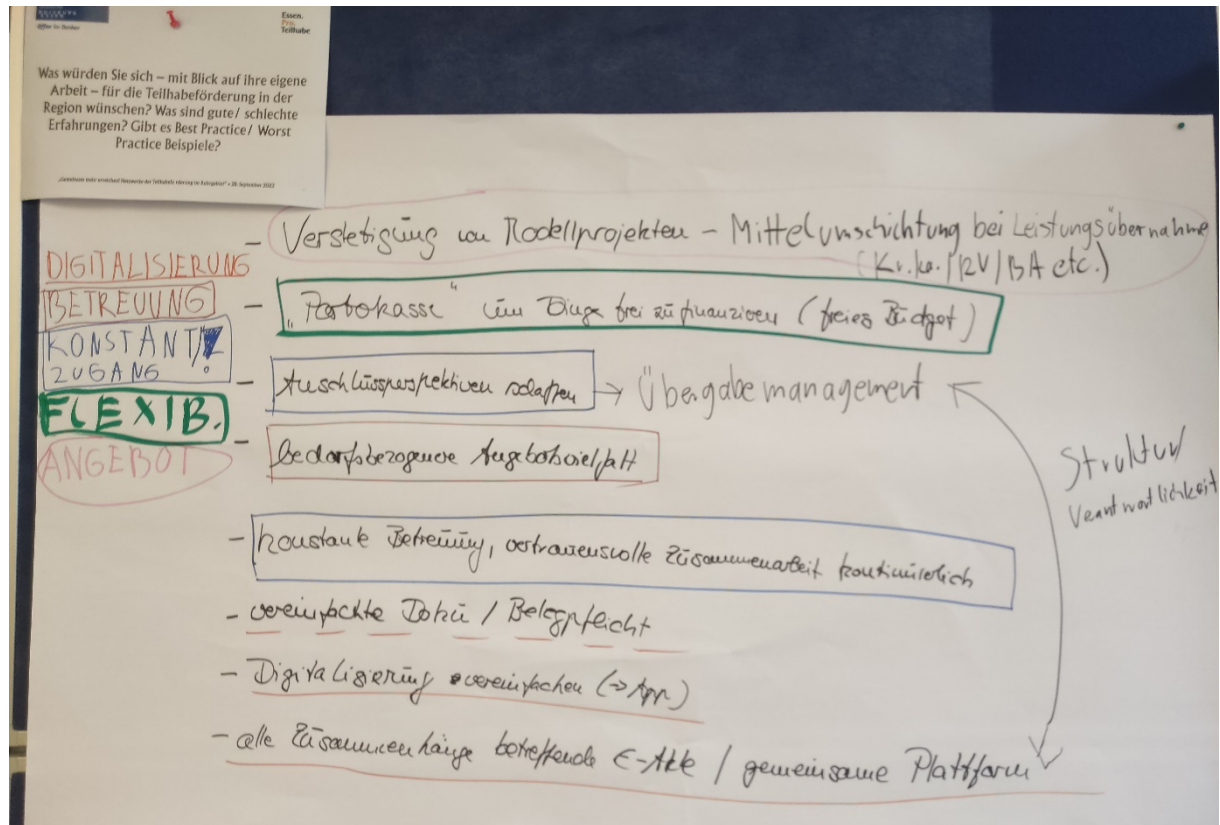 Offen im Denken
Essen.
Pro.
Teilhabe
Was würden Sie sich – mit Blick auf ihre eigene
Arbeit – für die Teilhabeförderung in der
Region wünschen? Was sind gute/ schlechte
Erfahrungen? Gibt es Best Practice/ Worst
Practice Beispiele?
DIGITALISIERUNG
BETREUUNG
KONSTANT/!
ZUGANG
FLEXIB.
ANGEBOT
- Verstetigung von Modellprojekten - Mittelumschichtung bei Leistungsübernahme
(Kr.ka./RV/BA etc.)
- „Portokasse“ um Dinge frei zu finanzieren (freies Budget)
- Anschlussperspektiven schaffen → Übergabemanagement
- bedarfsbezogene Angebotsvielfalt
Struktur/
Veantwortlichkeit
- konstante Betreuung, vertrauensvolle Zusammenarbeit kontinuierlich
- vereinfachte Doku / Belegpflicht
- Digitalisierung vereinfachen (→ App)
- alle Zusammenhänge betreffende E-Akte / gemeinsame Plattform